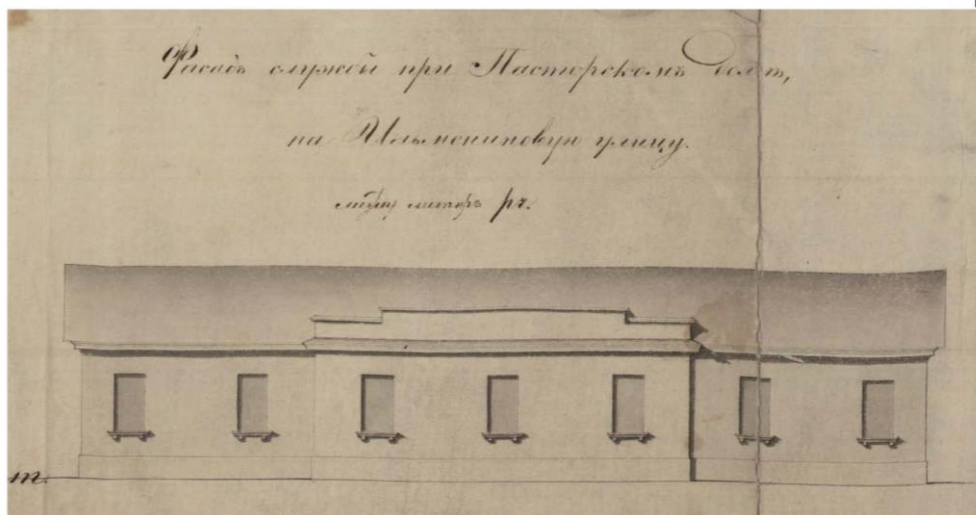 Фасадъ службъ при Пасторскомъ домѣ,
на Ильмониновую улицу.
между литеръ рт.
т.